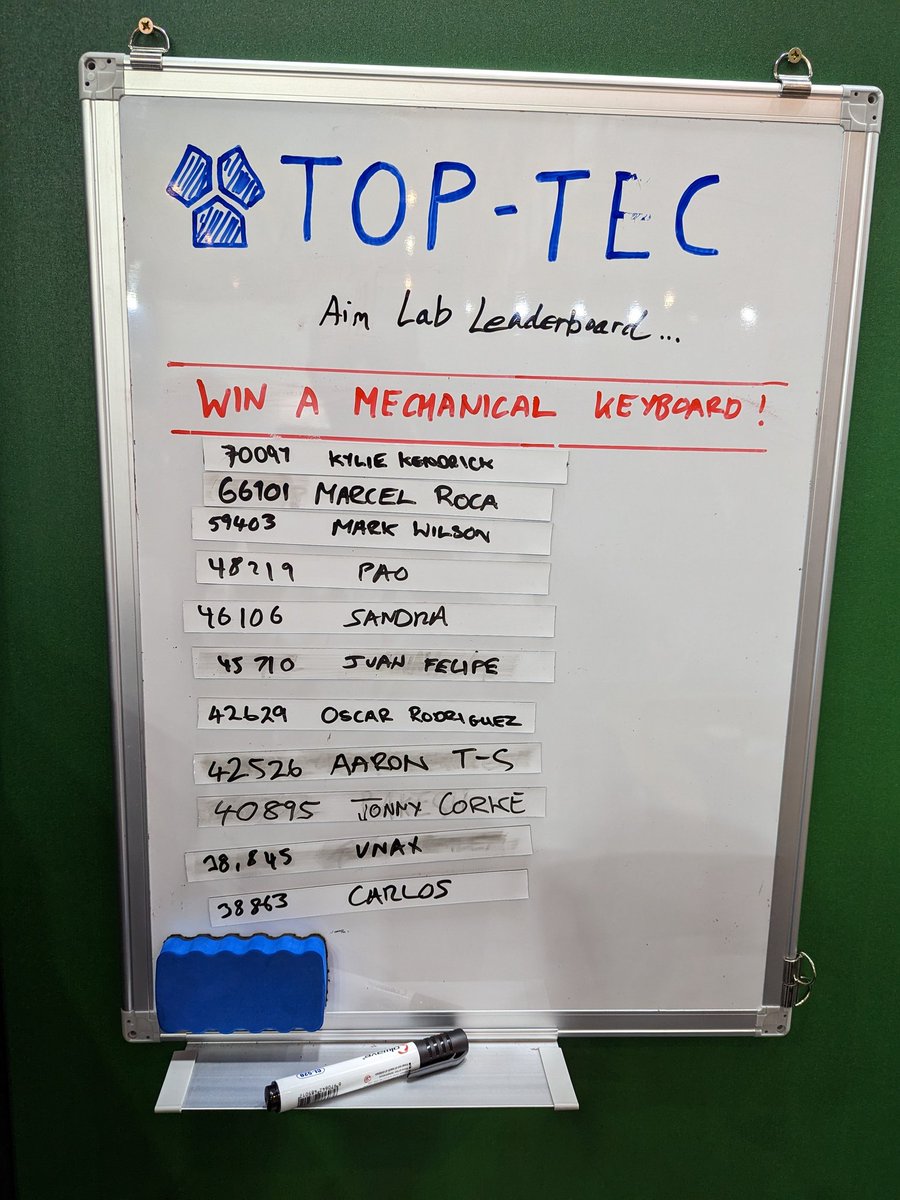 TOP-TEC
Aim Lab Leaderboard...
WIN A MECHANICAL KEYBOARD!
70097 KYLIE KENDRICK
66901 MARCEL ROCA
59403 MARK WILSON
48219 PAO
46106 SANDRA
45710 JUAN FELIPE
42629 OSCAR RODRIGUEZ
42526 AARON T-S
40895 JONNY CORKE
38,845 UNAX
38863 CARLOS